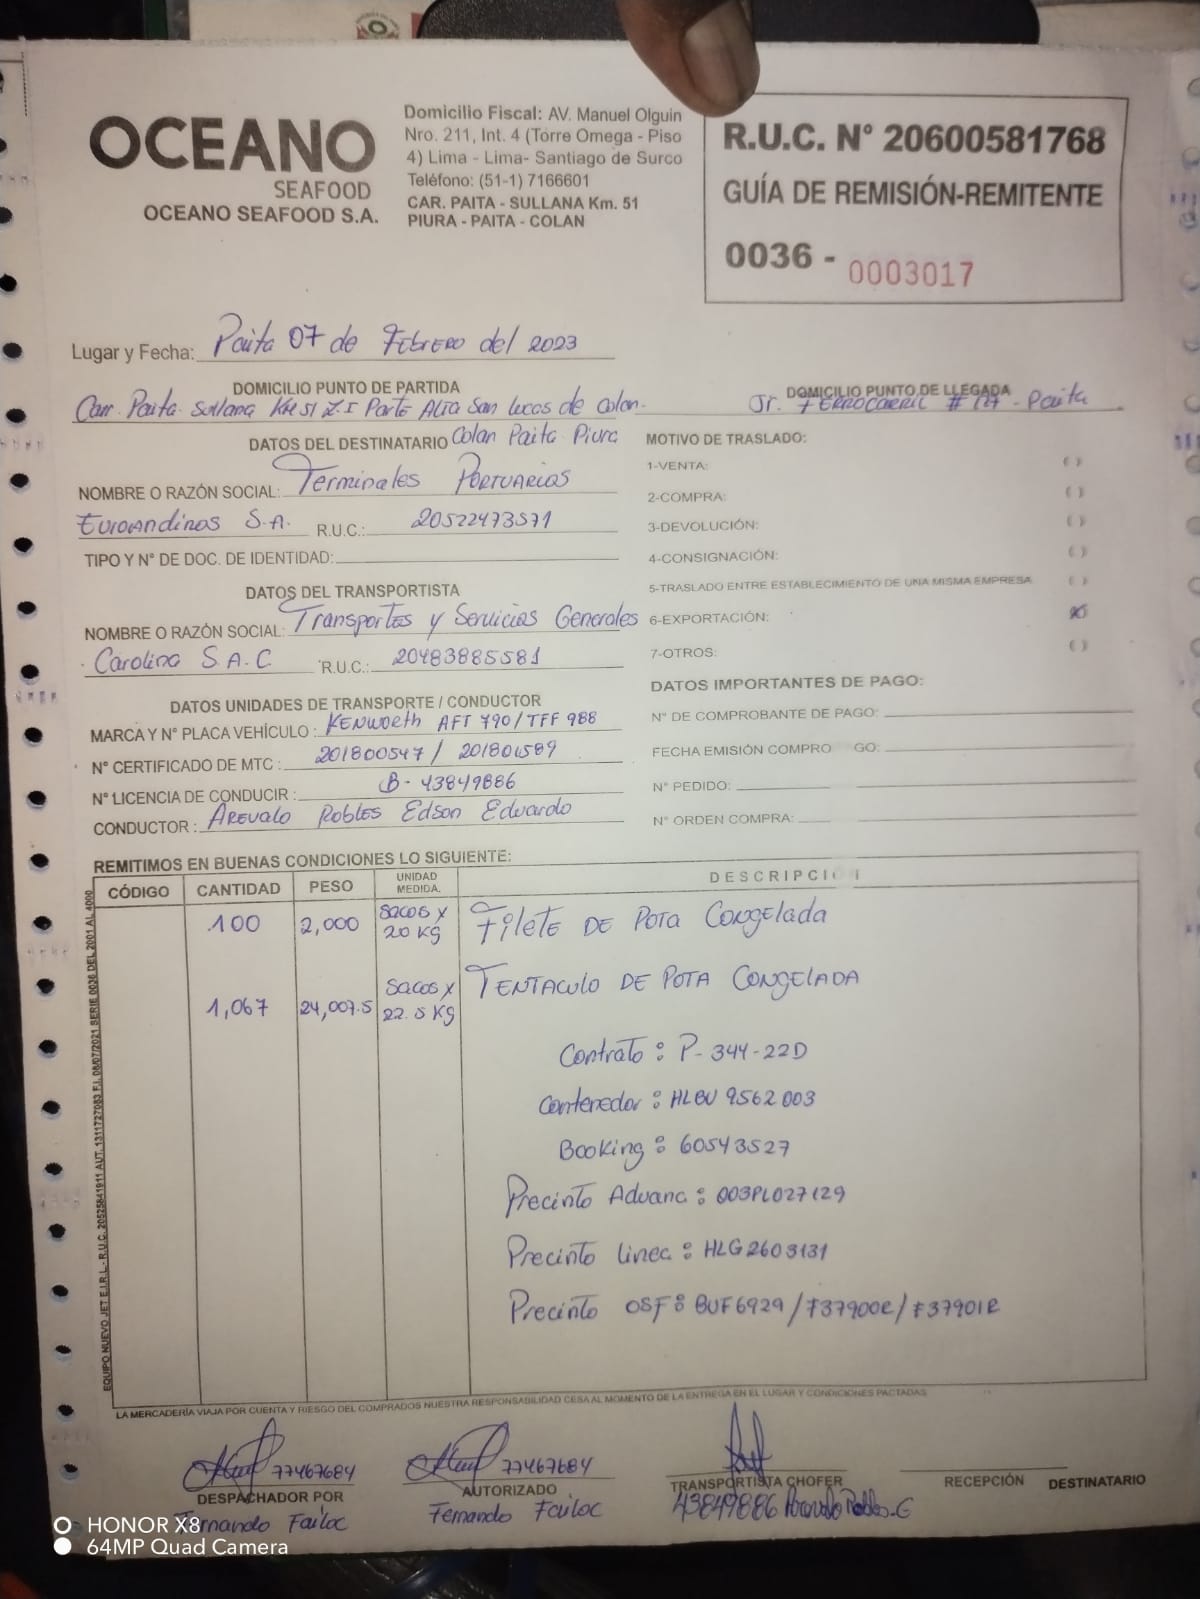 OCEANO
SEAFOOD
OCEANO SEAFOOD S.A.
Domicilio Fiscal: AV. Manuel Olguin
Nro. 211, Int. 4 (Torre Omega - Piso
4) Lima - Lima- Santiago de Surco
Teléfono: (51-1) 7166601
CAR. PAITA - SULLANA Km. 51
PIURA - PAITA - COLAN
R.U.C. N° 20600581768
GUÍA DE REMISIÓN-REMITENTE
0036 - 0003017
Lugar y Fecha: Paita 07 de Febrero del 2023
DOMICILIO PUNTO DE PARTIDA
Carr. Paita Sullana Km 51 Z.I Parte Alta San Lucas de Colan.
Colan Paita Piura
DOMICILIO PUNTO DE LLEGADA
Jr. FERROCARRIL # - Paita
DATOS DEL DESTINATARIO
NOMBRE O RAZÓN SOCIAL: Terminales Portuarios
Euroandinos S.A. R.U.C.: 20522473571
TIPO Y N° DE DOC. DE IDENTIDAD:
DATOS DEL TRANSPORTISTA
NOMBRE O RAZÓN SOCIAL: Transportes y Servicios Generales
Carolina S.A.C R.U.C.: 20483885581
DATOS UNIDADES DE TRANSPORTE / CONDUCTOR
MARCA Y N° PLACA VEHÍCULO: KENWORTH AFT 790/TFF 988
N° CERTIFICADO DE MTC: 201800547 /
N° LICENCIA DE CONDUCIR: B- 43849886
CONDUCTOR: AREVALO Robles Edson Eduardo
MOTIVO DE TRASLADO:
1-VENTA: ( )
2-COMPRA: ( )
3-DEVOLUCIÓN: ( )
4-CONSIGNACIÓN: ( )
5-TRASLADO ENTRE ESTABLECIMIENTO DE UNA MISMA EMPRESA ( )
6-EXPORTACIÓN: (X)
7-OTROS: ( )
DATOS IMPORTANTES DE PAGO:
N° DE COMPROBANTE DE PAGO:
FECHA EMISIÓN COMPRO GO:
N° PEDIDO:
N° ORDEN COMPRA:
REMITIMOS EN BUENAS CONDICIONES LO SIGUIENTE:
CÓDIGO CANTIDAD PESO UNIDAD MEDIDA. DESCRIPCI
100 2,000 Sacos x 20 KG Filete DE POTA Congelada
1,067 24,007.5 Sacos x 22.5 KG TENTACULO DE POTA CONGELADA
Contrato: P-344-22D
Contenedor: HLBU 9562003
Booking: 60543527
Precinto Aduana: 003PL027129
Precinto Linea: HLG2603131
Precinto OSF: BUF6929/F37900R/F37901R
EQUIPO NUEVO JET E.I.R.L - R.U.C. 20525841911 AUT. 1311727083 F.I. 08/07/2021 SERIE 0036 DEL 2001 AL 4000
LA MERCADERÍA VIAJA POR CUENTA Y RIESGO DEL COMPRADOS NUESTRA RESPONSABILIDAD CESA AL MOMENTO DE LA ENTREGA EN EL LUGAR Y CONDICIONES PACTADAS
77467684
DESPACHADOR POR
Fernando Failoc
77467684
AUTORIZADO
Fernando Failoc
TRANSPORTISTA CHOFER
43849886 Arevalo Robles-E
RECEPCIÓN DESTINATARIO
HONOR X8
64MP Quad Camera